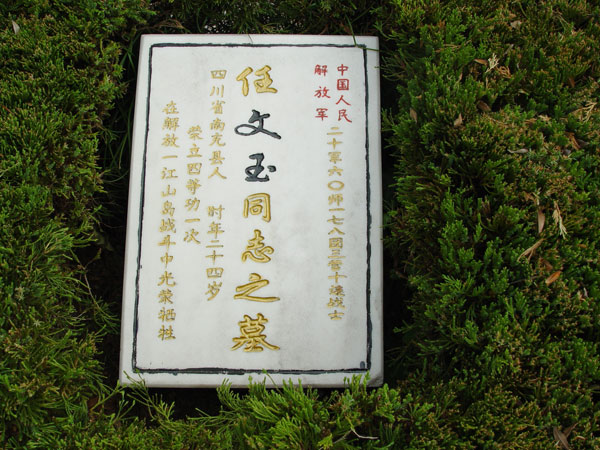 中国人民
解放军
二十军六〇师一七八团三营十连战士
任文玉同志之墓
四川省南充县人 时年二十四岁
荣立四等功一次
在解放一江山岛战斗中光荣牺牲